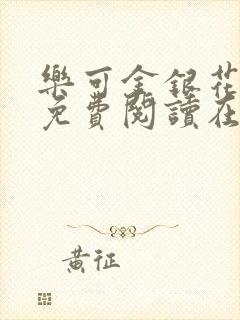 樂可金銀花
免費閱讀在
黃征